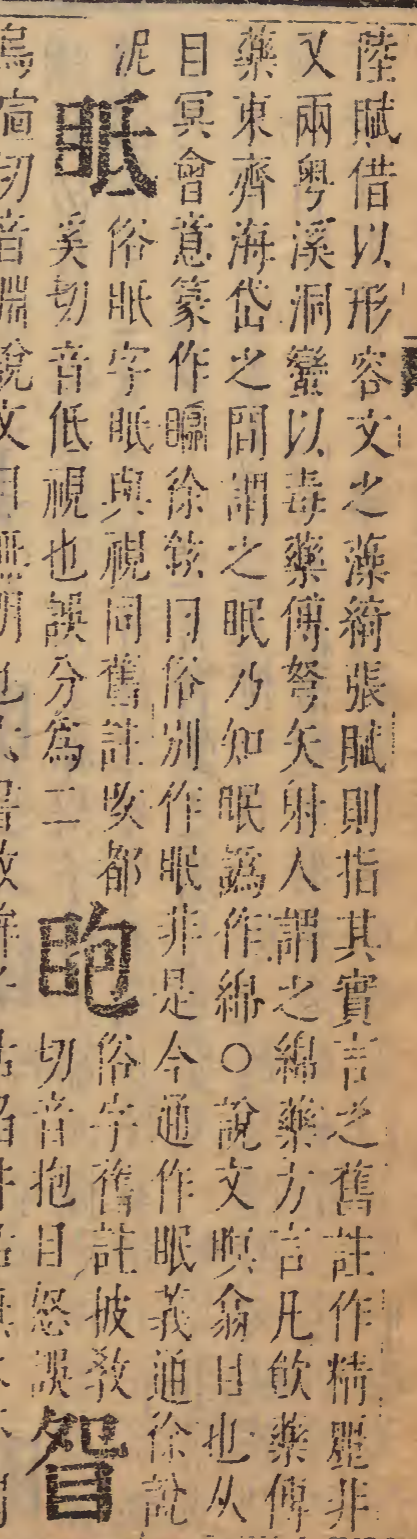 陸賦借以形容文之藻綺張賦則指其實言之舊註作精麗非
又兩粵溪洞蠻以毒藥傅弩矢射人謂之綿藥方言凡飲藥傅
藥東齊海岱之間謂之眠乃知眠譌作綿○說文瞑翕目也从
目冥會意篆作徐鉉曰俗別作眠非是今通作眠義通徐說
泥
眡
俗眂字眂與視同舊註改都
奚切音低視也誤分爲二
俗字舊註披教
切音抱目怒誤
眢
切音淵說文目無明也